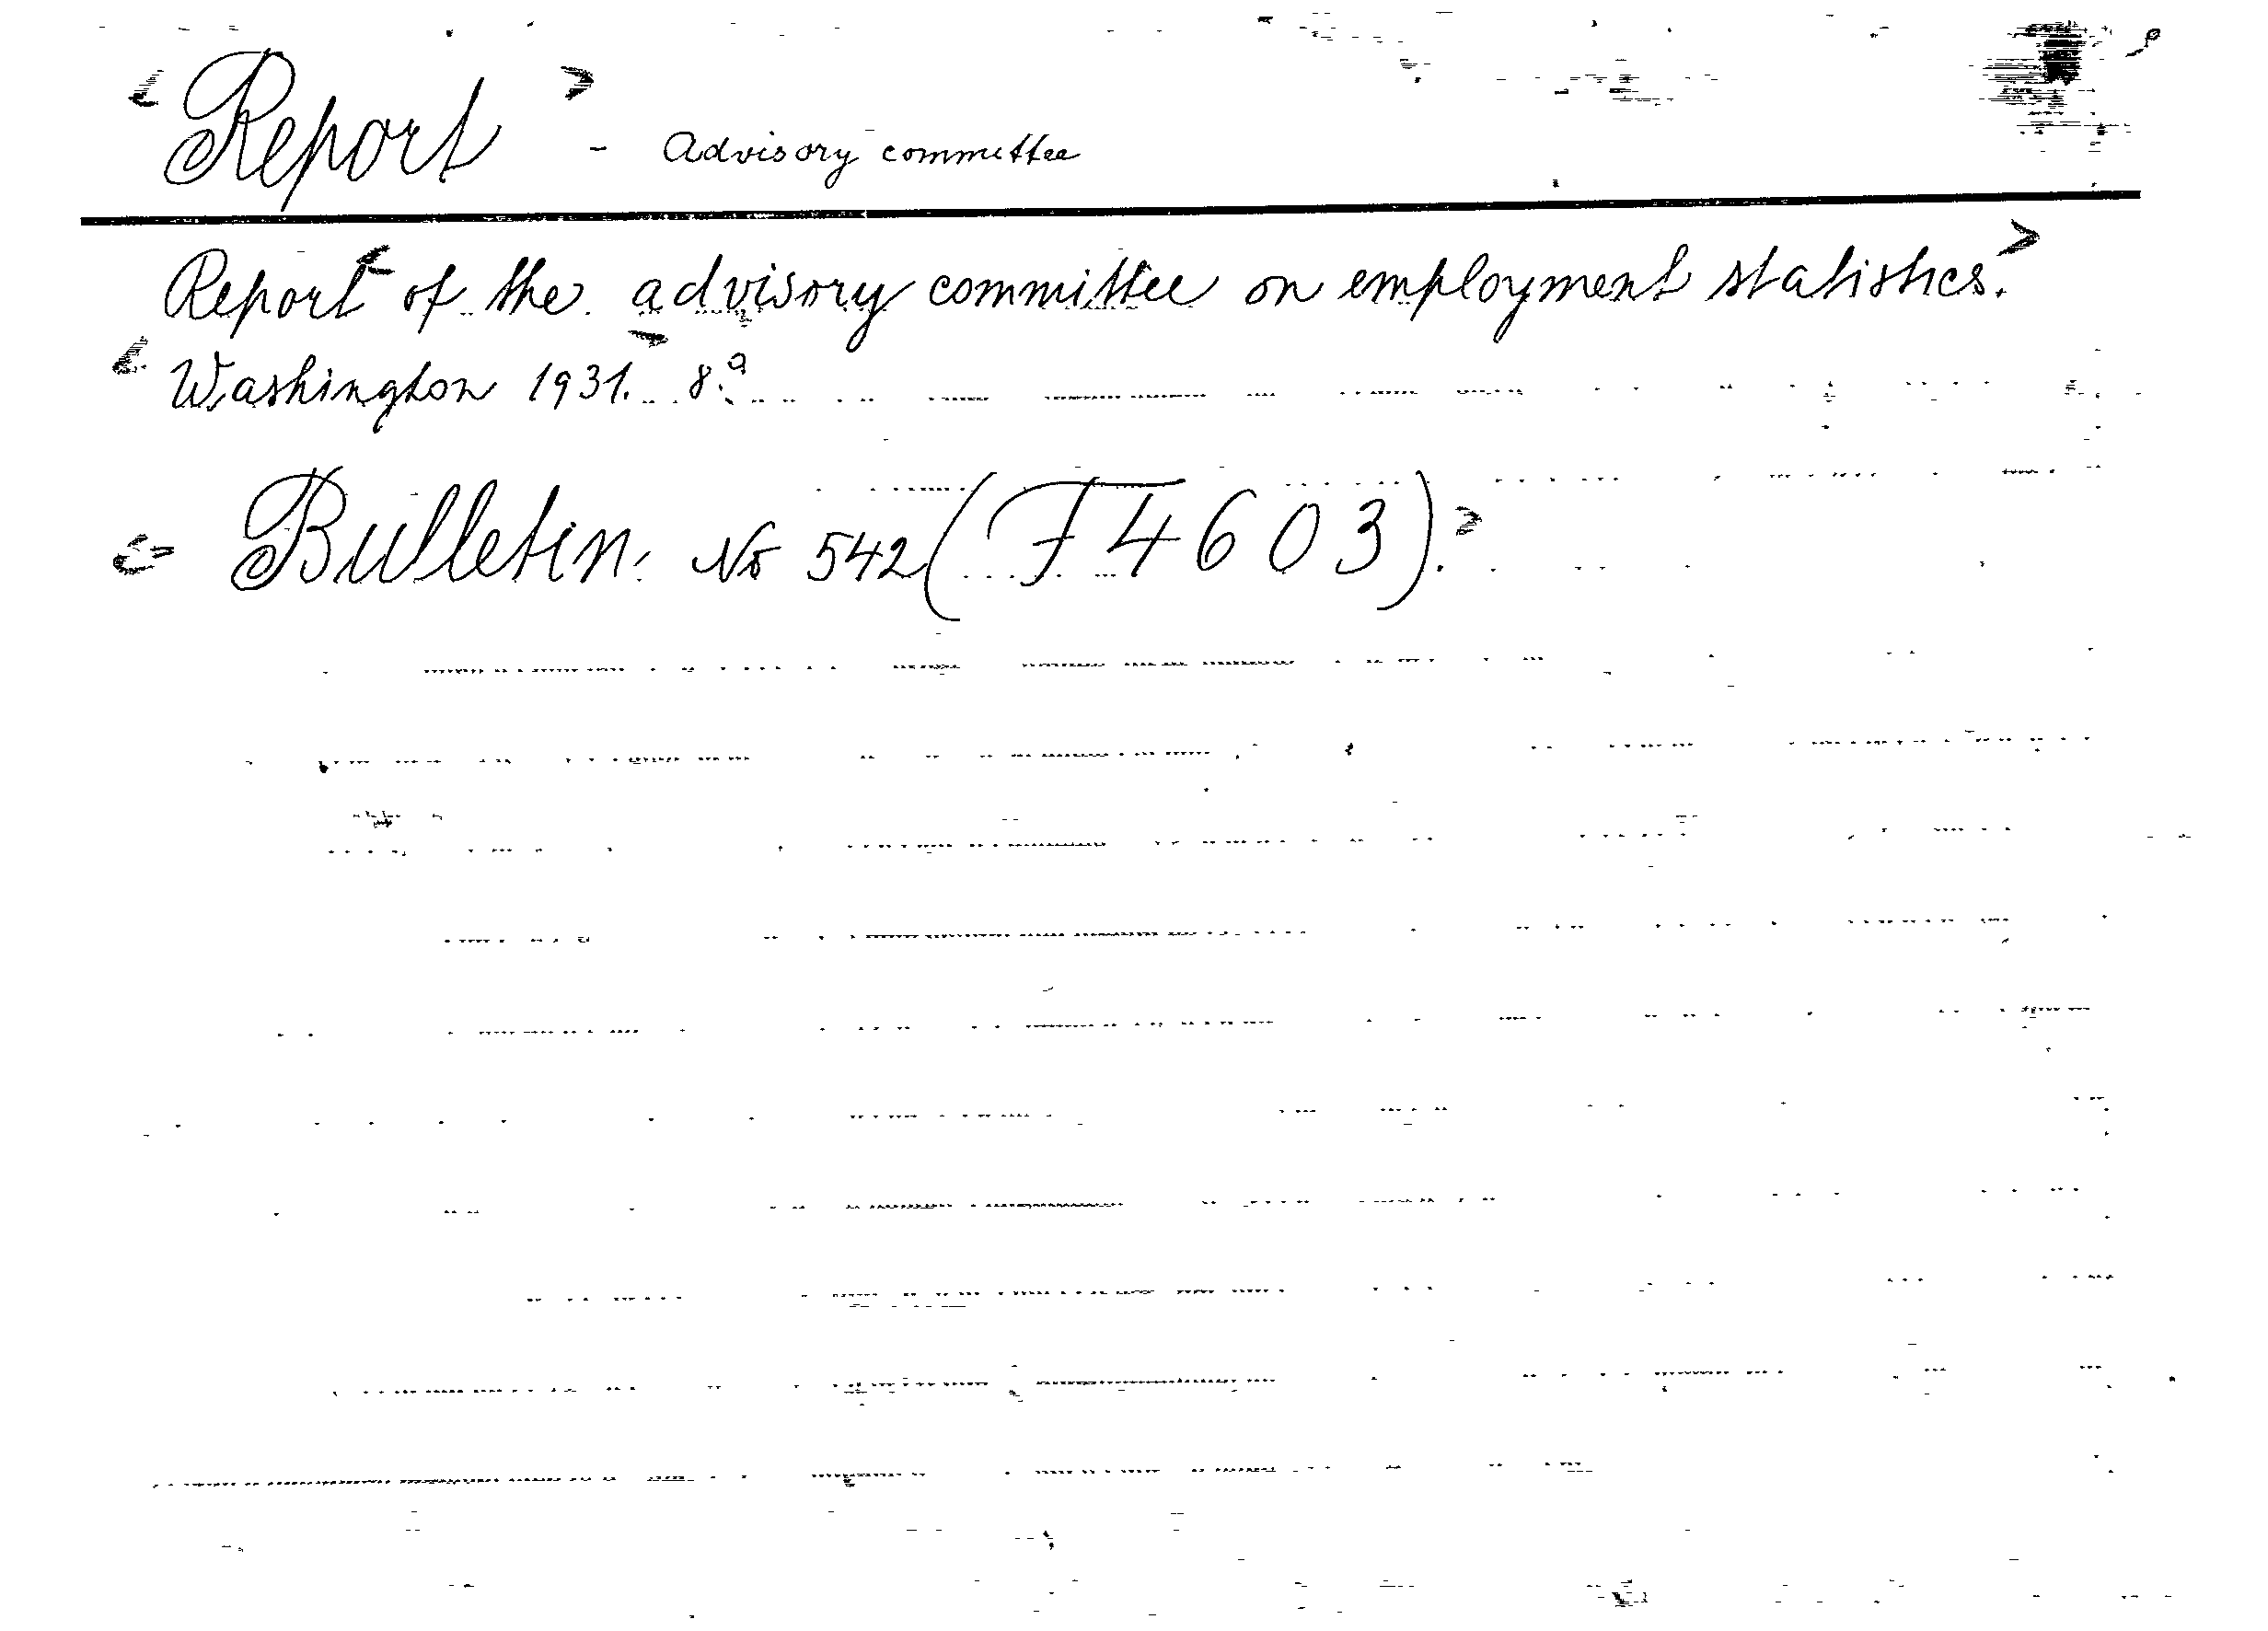 Report - Advisory committee
Report of the advisory committee on employment statistics.
Washington 1931. 8.º
Bulletin. No 542 (F4603).